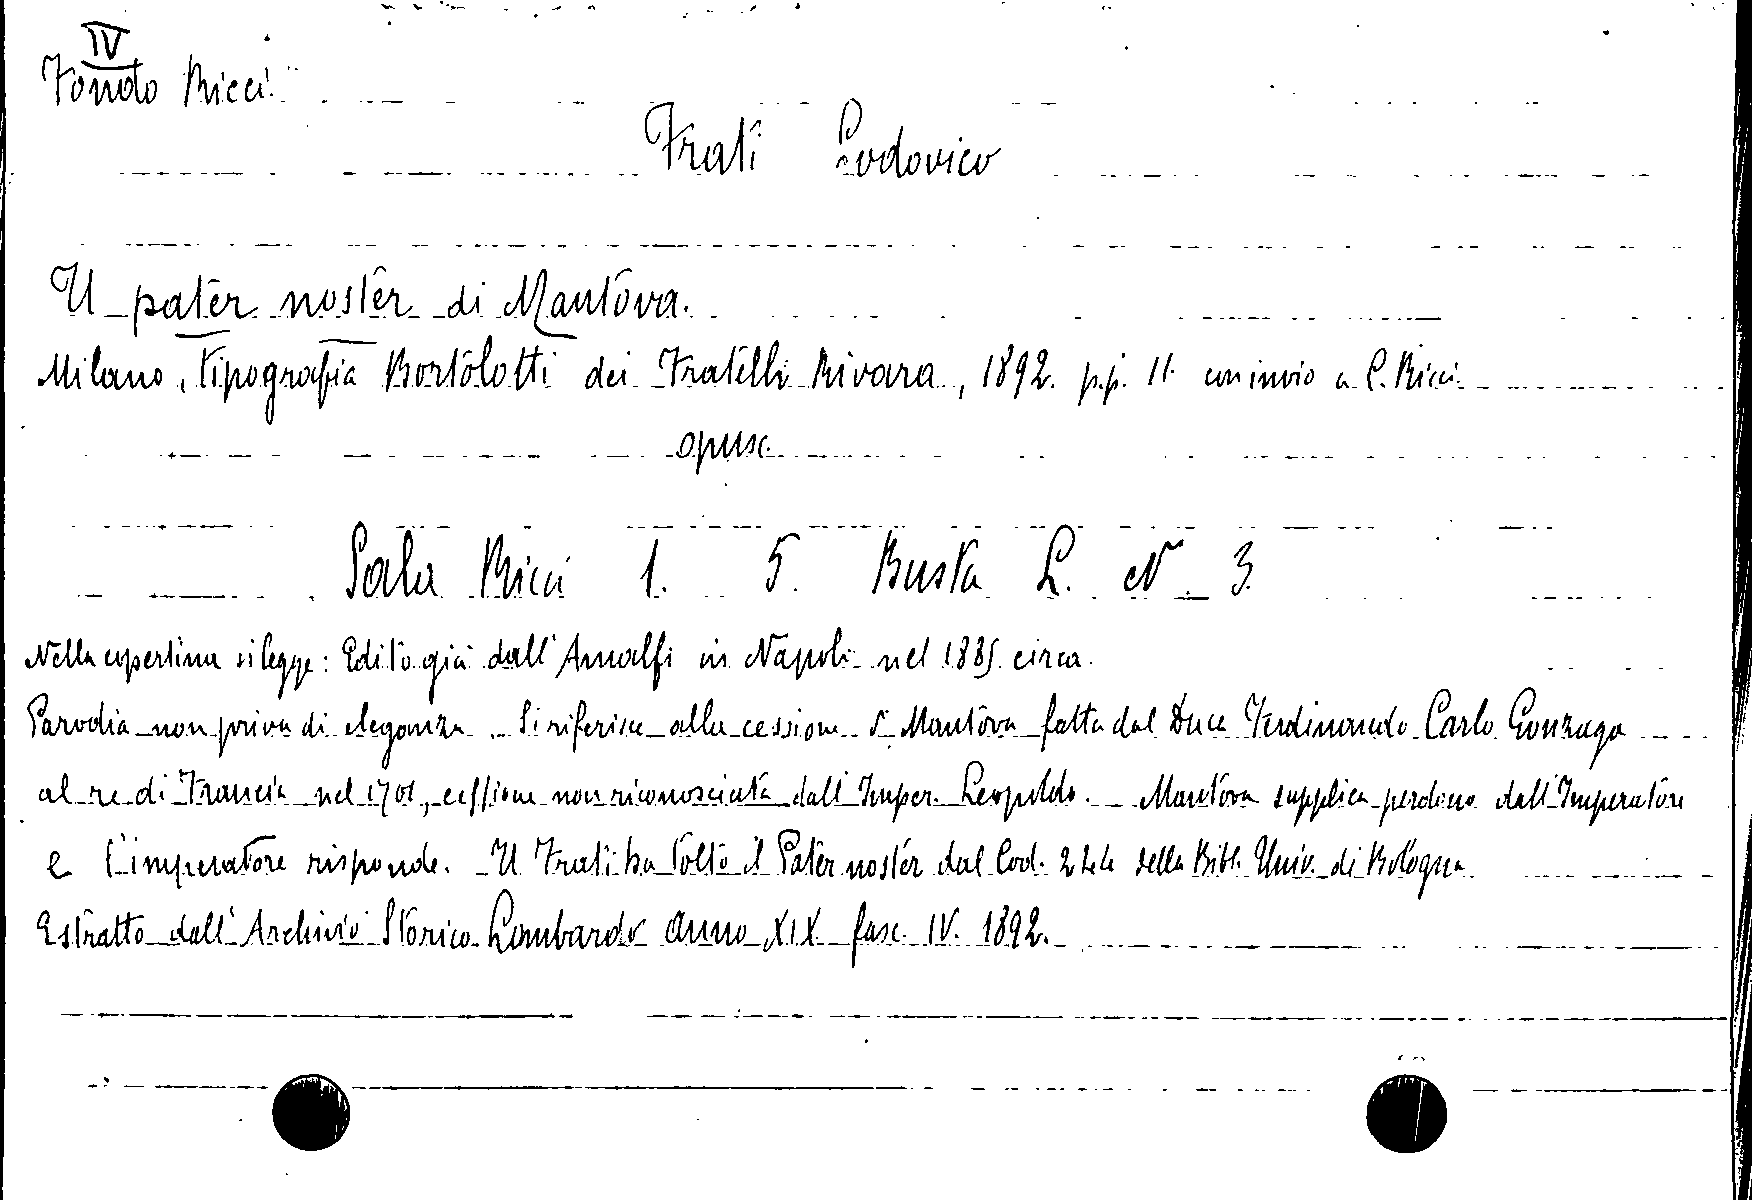 IV
Fondo Ricci.
Frati Lodovico
Il pater noster di Mantova.
Milano, tipografia Bortolotti dei Fratelli Rivara, 1892. p.p. 11. con invio a C. Ricci.
opusc.
Sala Ricci 1. 5. Busta L. N 3.
Nella copertina si legge: Edito già dall'Amalfi in Napoli nel 1885. circa.
Parodia non priva di eleganza. Si riferisce alla cessione di Mantova fatta dal Duca Ferdinando Carlo Gonzaga
al re di Francia nel 1701, cessione non riconosciuta dall'Imper. Leopoldo. _ Mantova supplica perdono dall'Imperatore
e l'imperatore risponde. Il Frati ha tolto il Pater noster dal Cod. 244 della Bibl. Univ. di Bologna.
Estratto dall'Archivio Storico Lombardo Anno XIX fasc. IV. 1892.